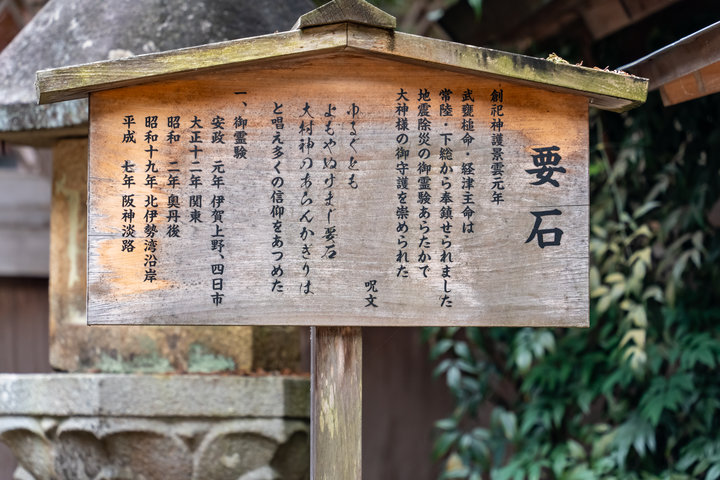 要石
創祀神護景雲元年
武甕槌命・経津主命は
常陸、下総から奉鎮せられました
地震除災の御霊験あらたかで
大神様の御守護を崇められた
呪文
ゆるぐとも
よもやぬけまじ要石
大村神のあらんかぎりは
と唱え多くの信仰をあつめた
一、御霊験
安政 元年 伊賀上野、四日市
大正十二年 関東
昭和 二年 奥丹後
昭和十九年 北伊勢湾沿岸
平成 七年 阪神淡路